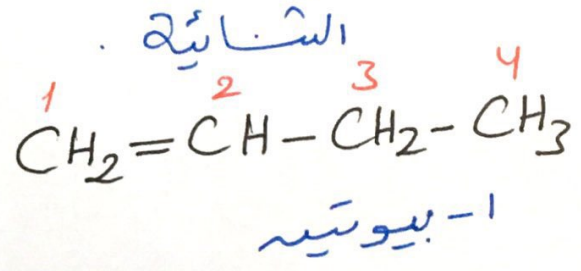 الثنائية .
1 2 3 4
CH₂=CH-CH₂-CH₃
١-بيوتين